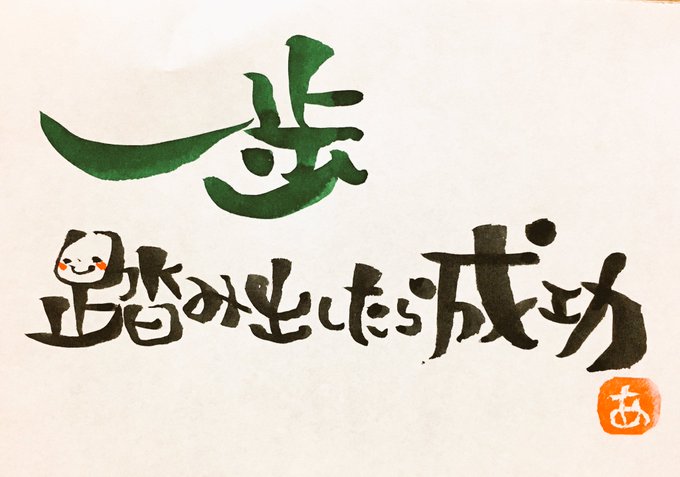 一歩
踏み出したら成功
あ